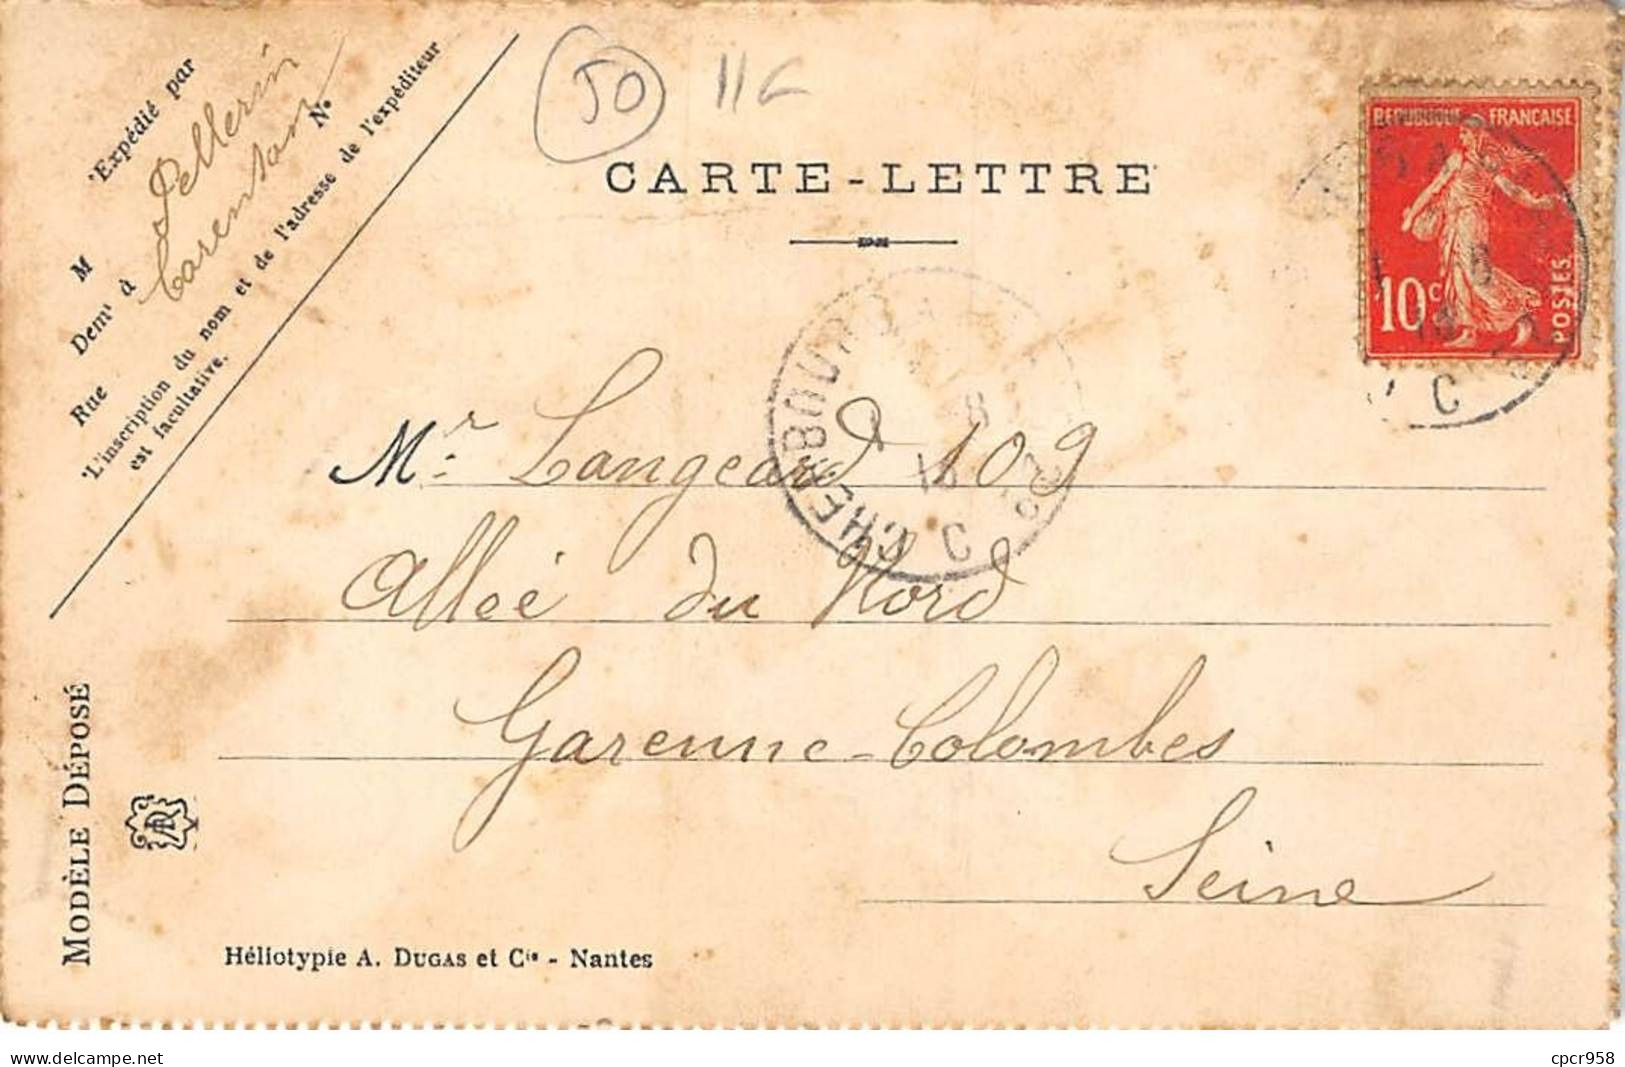 Expédié par
M Pellerin
Demᵗ à Carentan
Rue Nº
L'inscription du nom et de l'adresse de l'expéditeur
est facultative.
50 11 c
CARTE-LETTRE
RÉPUBLIQUE FRANÇAISE
10c
POSTES
CHERBOURG
C
C
Mr Langeard 109
Allée du Nord
Garenne-Colombes
Seine
MODÈLE DÉPOSÉ
Héliotypie A. DUGAS et Cie - Nantes
cpcr958